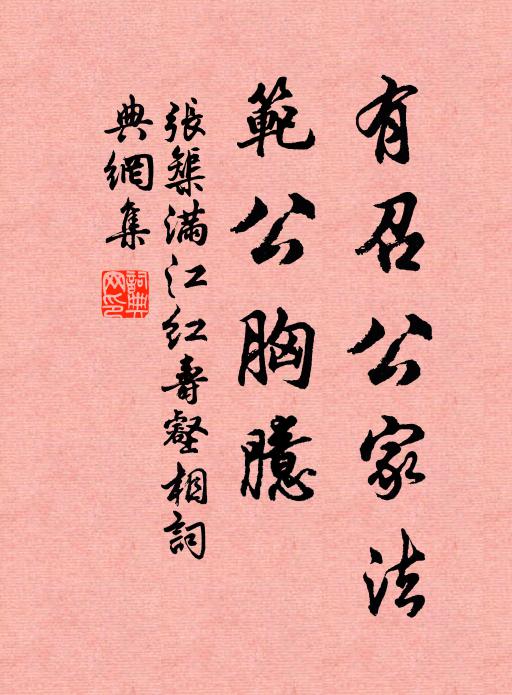 有召公家法
範公胸臆
張榘滿江紅壽壑相詞
典網集
詞典網印